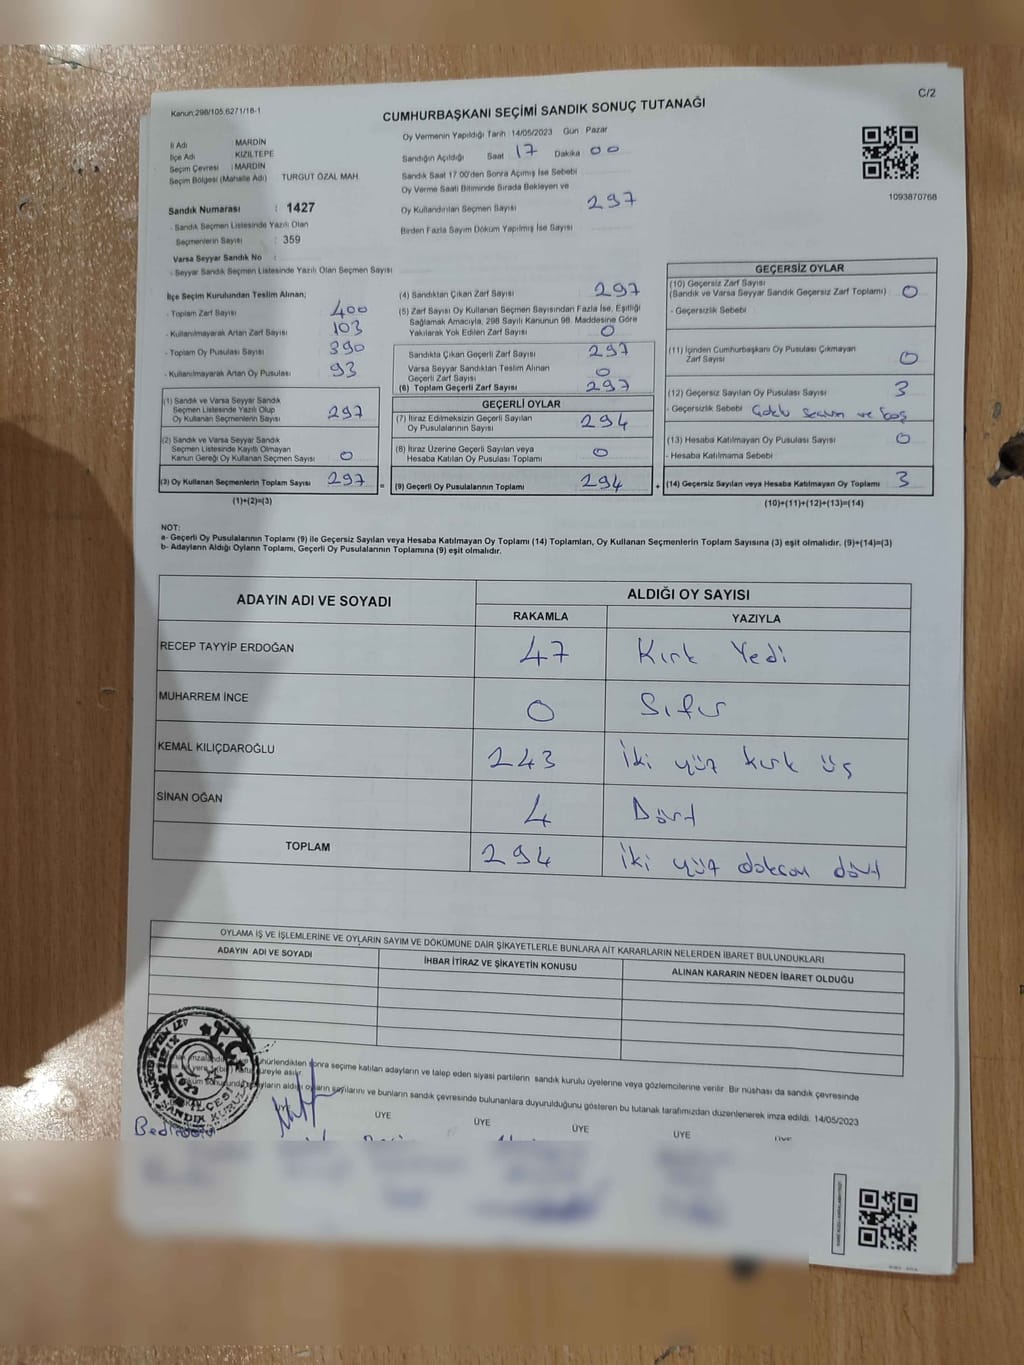 Kanun:298/105.6271/18-1
C/2
CUMHURBAŞKANI SEÇİMİ SANDIK SONUÇ TUTANAĞI
İl Adı MARDİN
İlçe Adı KIZILTEPE
Seçim Çevresi : MARDİN
Seçim Bölgesi (Mahalle Adı) TURGUT ÖZAL MAH.
Sandık Numarası : 1427
- Sandık Seçmen Listesinde Yazılı Olan
Seçmenlerin Sayısı : 359
Varsa Seyyar Sandık No :
- Seyyar Sandık Seçmen Listesinde Yazılı Olan Seçmen Sayısı
Oy Vermenin Yapıldığı Tarih 14/05/2023 Gün Pazar
Sandığın Açıldığı Saat 17 Dakika 00
Sandık Saat 17:00'den Sonra Açımış İse Sebebi
Oy Verme Saati Bitiminde Sırada Bekleyen ve
Oy Kullandırılan Seçmen Sayısı 297
Birden Fazla Sayım Döküm Yapılmış İse Sayısı
1093870768
İlçe Seçim Kurulundan Teslim Alınan;
- Toplam Zarf Sayısı 400
- Kullanılmayarak Artan Zarf Sayısı 103
- Toplam Oy Pusulası Sayısı 390
- Kullanılmayarak Artan Oy Pusulası 93
(1) Sandık ve Varsa Seyyar Sandık
Seçmen Listesinde Yazılı Olup
Oy Kullanan Seçmenlerin Sayısı 297
(2) Sandık ve Varsa Seyyar Sandık
Seçmen Listesinde Kayıtlı Olmayan
Kanun Gereği Oy Kullanan Seçmen Sayısı 0
(3) Oy Kullanan Seçmenlerin Toplam Sayısı 297 =
(1)+(2)=(3)
(4) Sandıktan Çıkan Zarf Sayısı 297
(5) Zarf Sayısı Oy Kullanan Seçmen Sayısından Fazla İse, Eşitliği
Sağlamak Amacıyla, 298 Sayılı Kanunun 98. Maddesine Göre
Yakılarak Yok Edilen Zarf Sayısı 0
Sandıkta Çıkan Geçerli Zarf Sayısı 297
Varsa Seyyar Sandıktan Teslim Alınan
Geçerli Zarf Sayısı 0
(6) Toplam Geçerli Zarf Sayısı 297
GEÇERLİ OYLAR
(7) İtiraz Edilmeksizin Geçerli Sayılan
Oy Pusulalarının Sayısı 294
(8) İtiraz Üzerine Geçerli Sayılan veya
Hesaba Katılan Oy Pusulası Toplamı 0
(9) Geçerli Oy Pusulalarının Toplamı 294 +
GEÇERSİZ OYLAR
(10) Geçersiz Zarf Sayısı
(Sandık ve Varsa Seyyar Sandık Geçersiz Zarf Toplamı) 0
- Geçersizlik Sebebi
(11) İçinden Cumhurbaşkanı Oy Pusulası Çıkmayan
Zarf Sayısı 0
(12) Geçersiz Sayılan Oy Pusulası Sayısı 3
- Geçersizlik Sebebi ve boş
(13) Hesaba Katılmayan Oy Pusulası Sayısı 0
- Hesaba Katılmama Sebebi
(14) Geçersiz Sayılan veya Hesaba Katılmayan Oy Toplamı 3
(10)+(11)+(12)+(13)=(14)
NOT:
a- Geçerli Oy Pusulalarının Toplamı (9) ile Geçersiz Sayılan veya Hesaba Katılmayan Oy Toplamı (14) Toplamları, Oy Kullanan Seçmenlerin Toplam Sayısına (3) eşit olmalıdır. (9)+(14)=(3)
b- Adayların Aldığı Oyların Toplamı, Geçerli Oy Pusulalarının Toplamına (9) eşit olmalıdır.
ADAYIN ADI VE SOYADI
ALDIĞI OY SAYISI
RAKAMLA YAZIYLA
RECEP TAYYİP ERDOĞAN 47 Kırk Yedi
MUHARREM İNCE 0 Sıfır
KEMAL KILIÇDAROĞLU 243 İki yüz kırk üç
SİNAN OĞAN 4 Dört
TOPLAM 294 İki yüz doksan dört
OYLAMA İŞ VE İŞLEMLERİNE VE OYLARIN SAYIM VE DÖKÜMÜNE DAİR ŞİKAYETLERLE BUNLARA AİT KARARLARIN NELERDEN İBARET BULUNDUKLARI
ADAYIN ADI VE SOYADI İHBAR İTİRAZ VE ŞİKAYETİN KONUSU ALINAN KARARIN NEDEN İBARET OLDUĞU
sonra seçime katılan adayların ve talep eden siyasi partilerin sandık kurulu üyelerine veya gözlemcilerine verilir. Bir nüshası da sandık çevresinde
süreyle asılır.
aldığı oyların sayılarını ve bunların sandık çevresinde bulunanlara duyurulduğunu gösteren bu tutanak tarafımızdan düzenlenerek imza edildi. 14/05/2023
ÜYE ÜYE ÜYE ÜYE ÜYE